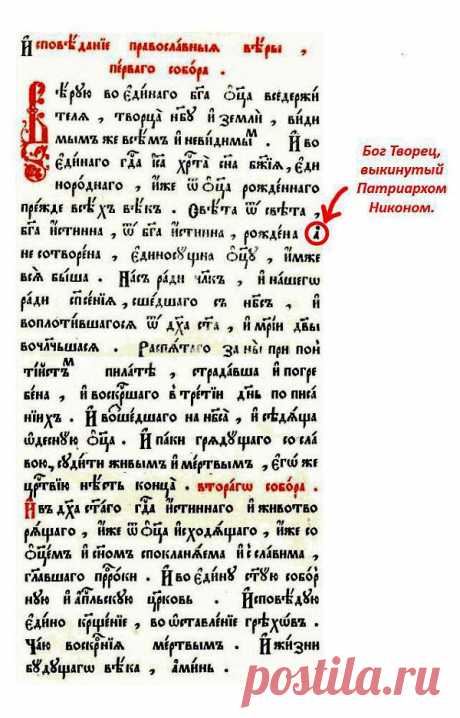 И҆сповѣ́данїе правосла́вныѧ вѣ́ры ,
пе́рваго собо́ра .
Вѣ́рꙋю во є҆ди́наго бг҃а ѻ҆ц҃а̀ вседержи́
телѧ , творца̀ нб҃ꙋ и҆ землѝ , ви́ди
мымъ же всѣ̑мъ и҆ неви́димымъ . И҆ во
є҆ди́наго гд҃а і҆са хрⷭ҇та̀ сн҃а бж҃їѧ , є҆ди
норо́днаго , и҆́же ѿ ѻ҆ц҃а̀ рожде́ннаго
пре́жде всѣ́хъ вѣ́къ . Свѣ́та ѿ свѣ́та ,
бг҃а и҆́стинна , ѿ бг҃а и҆́стинна , рожде́на а҆
не сотворе́на , є҆диносꙋ́щна ѻ҆ц҃ꙋ̀ , и҆́мже
всѧ̑ бы́ша . На́съ ра́ди чл҃къ , и҆ на́шегѡ
ра́ди спⷭ҇е́нїѧ , сше́дшаго съ нб҃съ , и҆
воплоти́вшагосѧ ѿ дх҃а ст҃а , и҆ мр҃і́и дв҃ы
вочл҃чьшасѧ . Распѧ́таго за ны̀ при пон
ті́йстѣмъ пила́тѣ , страда́вша и҆ погре
бе́на , и҆ воскр҃шаго в тре́тїи дн҃ь по писа
нїихъ . И҆ возше́дшаго на нб҃са̀ , и҆ сѣдѧ́ща
ѡ҆деснꙋ́ю ѻ҆ц҃а̀ . И҆ па́ки грѧдꙋ́щаго со сла́
вою , сꙋди́ти живы́мъ и҆ ме́ртвымъ , є҆гѡ́ же
црⷭ҇твїю нѣ́сть конца̀ . втора́гѡ собо́ра .
И҆ въ дх҃а ст҃а́го гд҃а и҆́стиннаго и҆ животво
рѧ́щаго , и҆́же ѿ ѻ҆ц҃а̀ и҆сходѧ́щаго , и҆́же со
ѻ҆ц҃е́мъ и҆ сн҃омъ спокланѧ́ема и҆ сслави́ма ,
гл҃авшаго прⷪ҇рки . И҆ во є҆ди́нꙋ ст҃ꙋ́ю собо́р
нꙋю и҆ а҆пⷭ҇льскꙋю цр҃ковь . И҆сповѣ́дꙋю
є҆ди́но крⷭ҇ще́нїе , во ѡ҆ставле́нїе грѣхѡ́въ .
Ча́ю воскрⷭ҇нїѧ ме́ртвымъ . И҆ жи́зни
бꙋ́дꙋщагѡ вѣ́ка , а҆ми́нь .
Бог Творец,
выкинутый
Патриархом
Никоном.
postila.ru